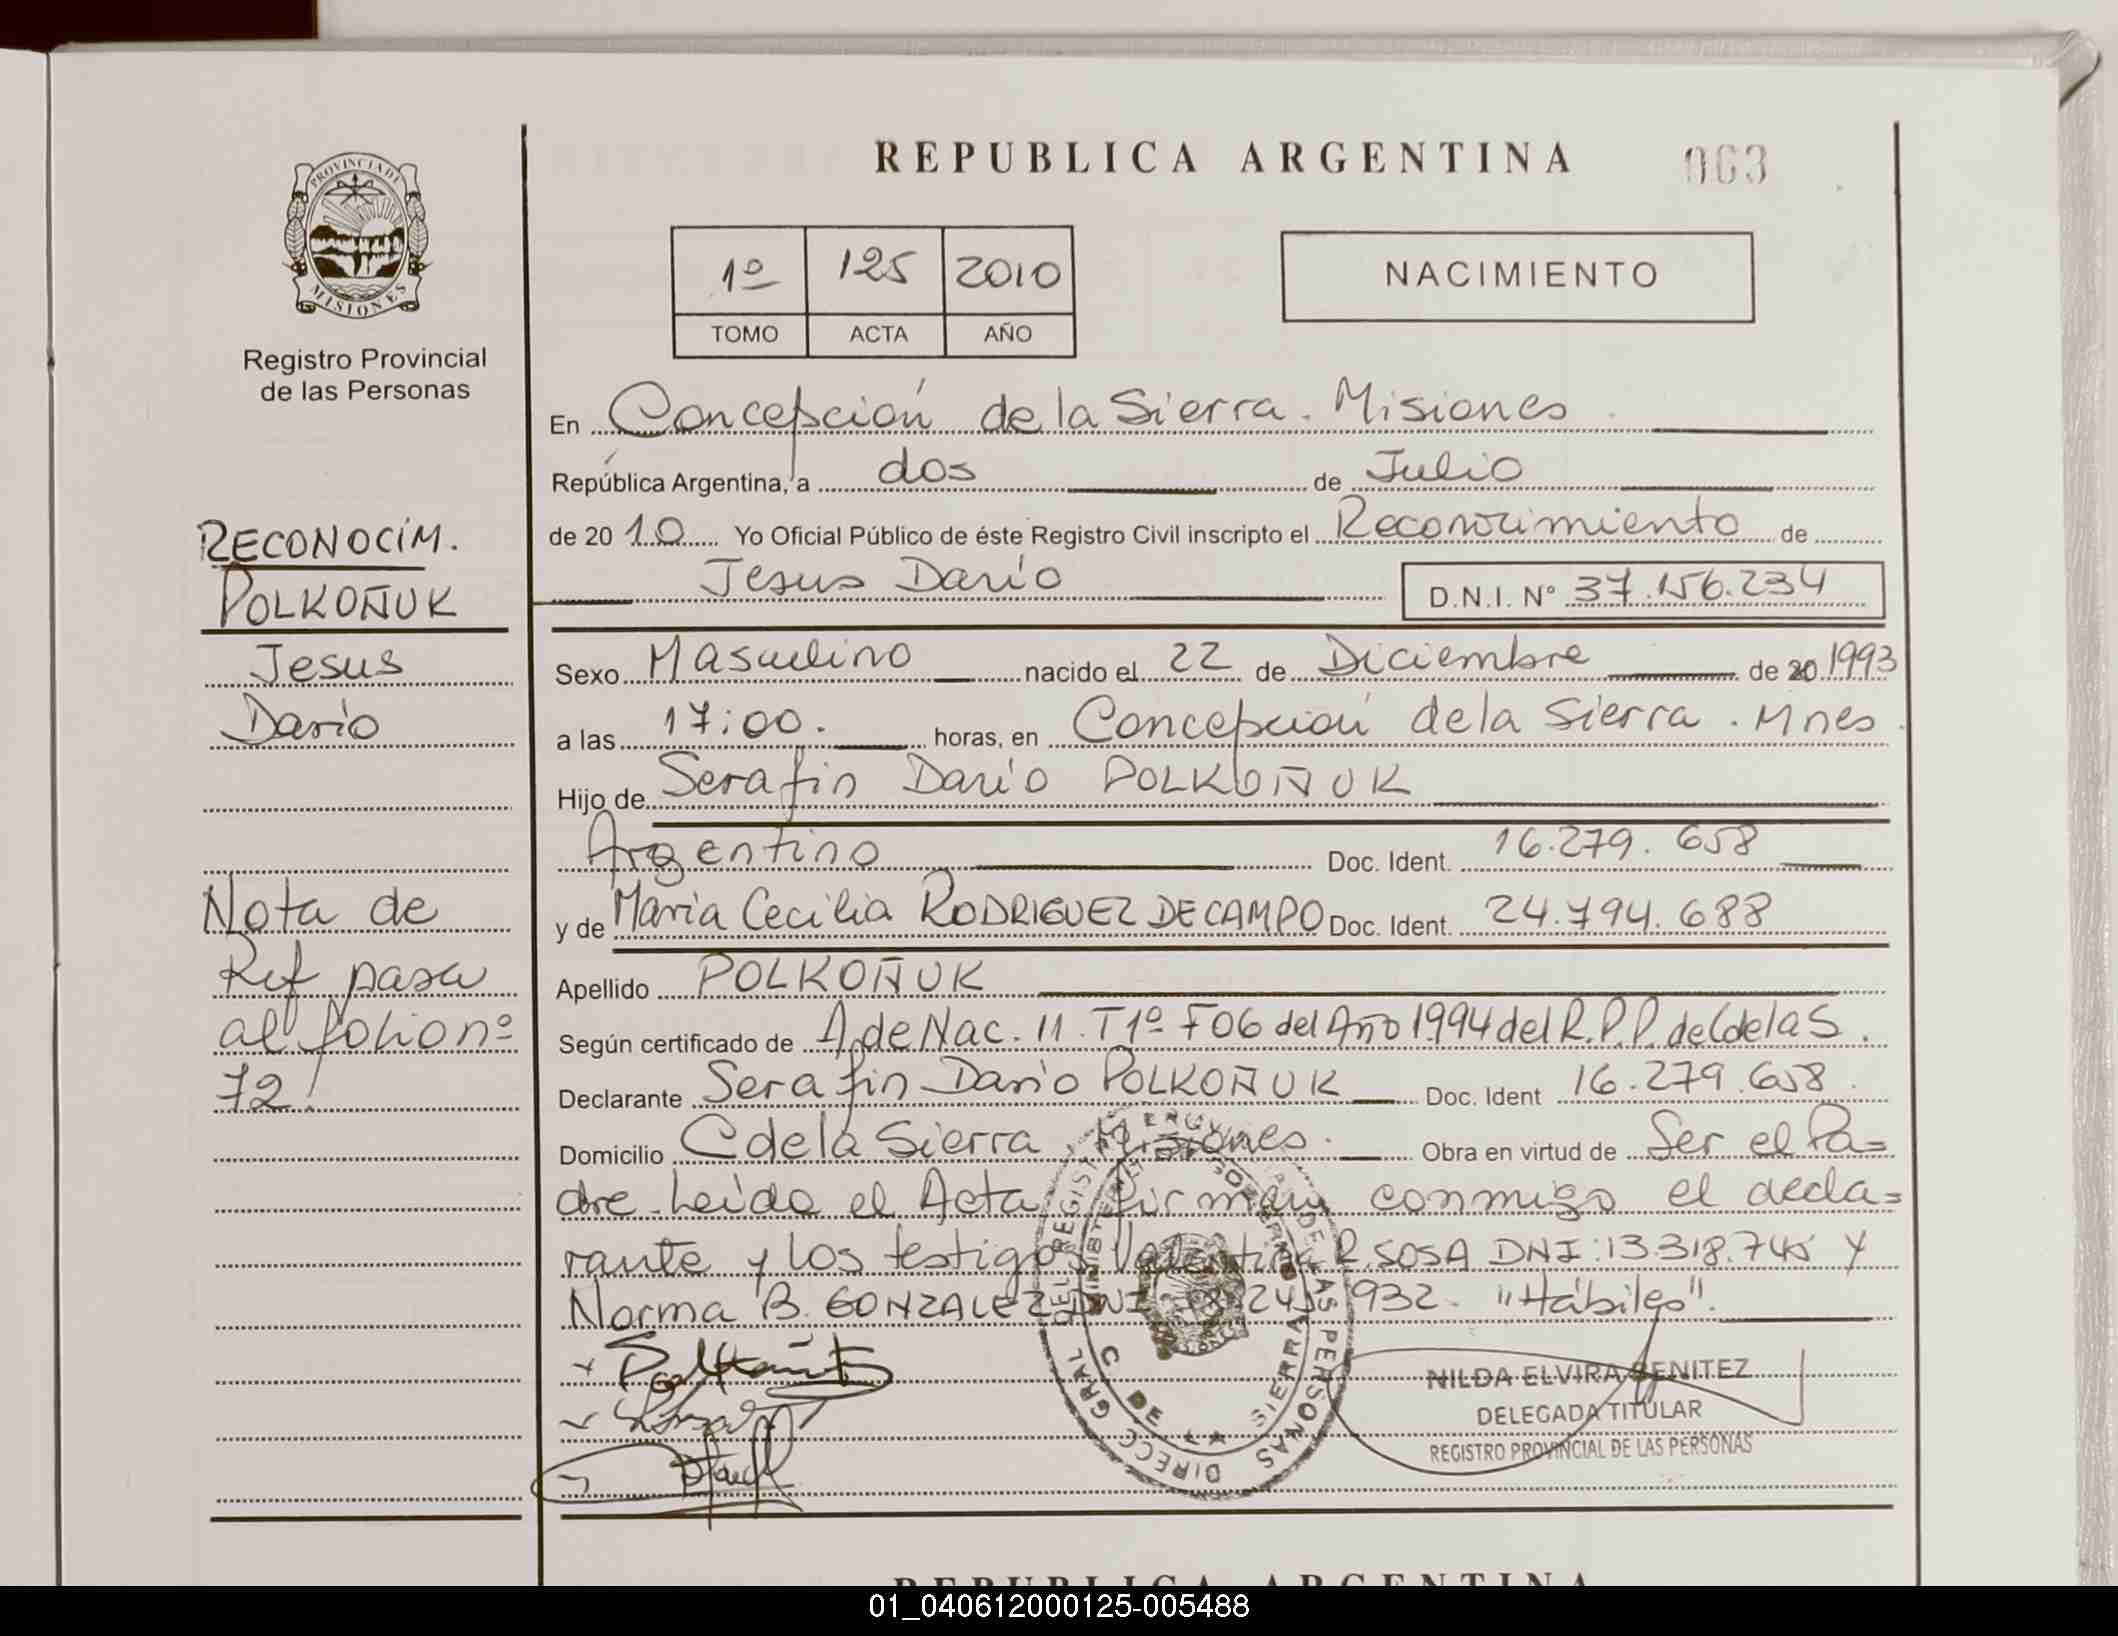 REPUBLICA ARGENTINA
063
PROVINCIA DE
MISIONES
Registro Provincial
de las Personas
1º 125 2010
TOMO ACTA AÑO
NACIMIENTO
En Concepción de la Sierra. Misiones
República Argentina, a dos de Julio
de 2010 Yo Oficial Público de éste Registro Civil inscripto el Reconocimiento de
Jesus Darío D.N.I. Nº 37.156.234
Sexo Masculino nacido el 22 de Diciembre de 20 1993
a las 17:00. horas, en Concepción de la Sierra. Mnes.
Hijo de Serafin Darío POLKOÑUK
Argentino Doc. Ident. 16.279.658
y de Maria Cecilia RODRIGUEZ DE CAMPO Doc. Ident. 24.794.688
Apellido POLKOÑUK
Según certificado de A. de Nac. 11. T1º F06 del Año 1994 del R.P.P. de C de la S.
Declarante Serafin Darío POLKOÑUK Doc. Ident 16.279.658.
Domicilio C de la Sierra Misiones. Obra en virtud de Ser el Pa=
dre. Leida el Acta firman conmigo el decla=
rante y los testigos Valentina R. SOSA DNI: 13.318.745 y
Norma B. GONZALEZ DNI 932. "Hábiles".
NILDA ELVIRA BENITEZ
DELEGADA TITULAR
REGISTRO PROVINCIAL DE LAS PERSONAS
DIRECC GRAL DEL REGISTRO PROVINCIAL DE LAS PERSONAS
C DE LA SIERRA
RECONOCIM.
POLKOÑUK
Jesus
Darío
Nota de
Ref pasa
al folio nº
72!
REPUBLICA ARGENTINA
01_040612000125-005488